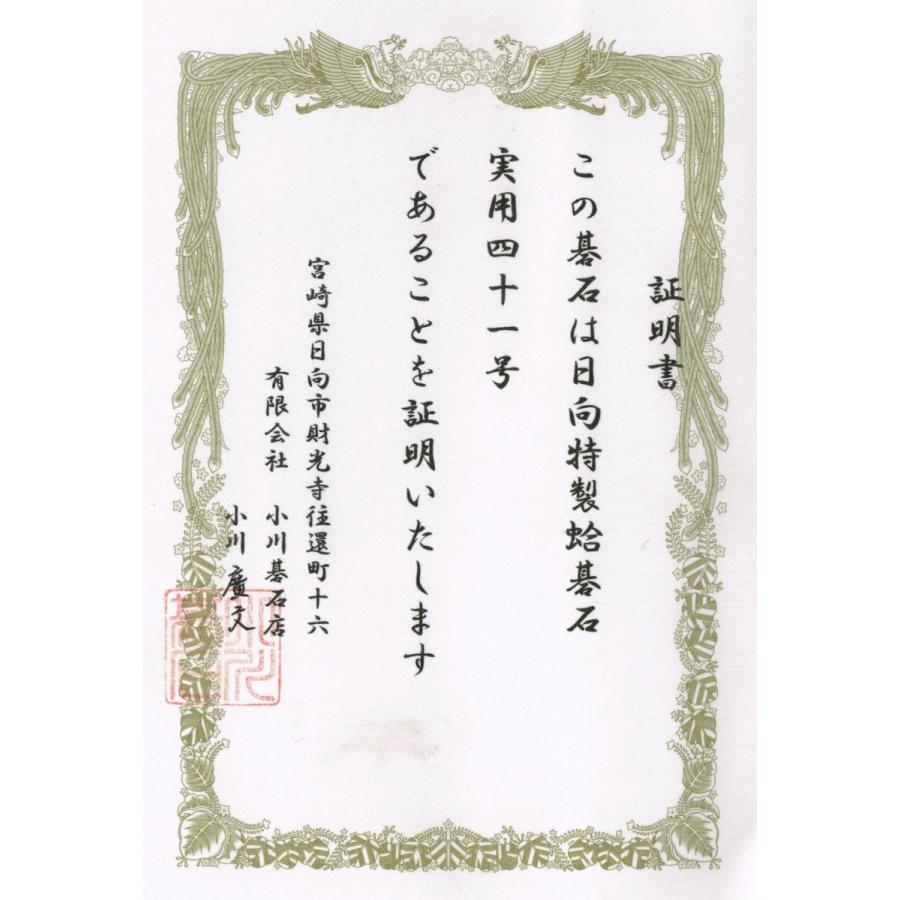 証明書
この碁石は日向特製蛤碁石
実用四十一号
であることを証明いたします
宮崎県日向市財光寺往還町十六
有限会社 小川碁石店
小川廣文